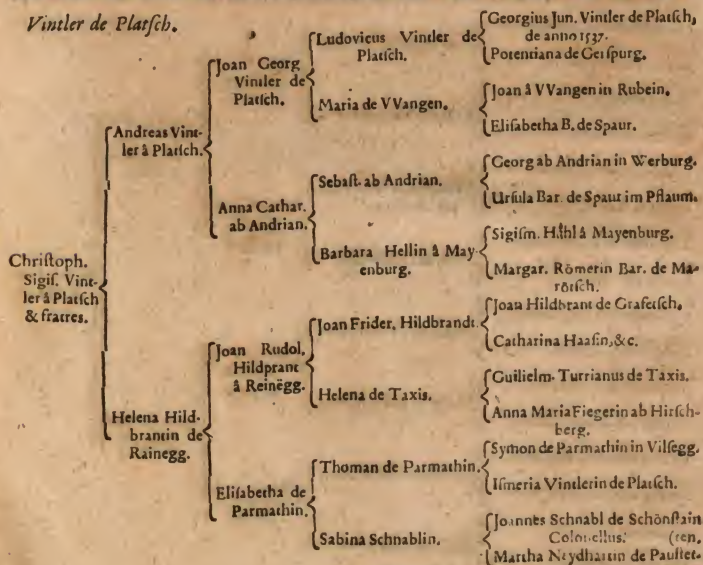 Vintler de Platſch.
Christoph.
Sigiſ. Vint-
ler â Platſch
& fratres.
Andreas Vint-
ler â Platſch.
Helena Hild-
brantin de
Rainegg.
Joan Georg
Vintler de
Platſch.
Anna Cathar.
ab Andrian.
Joan Rudol.
Hildprant
â Reinëgg.
Eliſabetha de
Parmathin.
Ludovicus Vintler de
Platſch.
Maria de VVangen.
Sebaſt. ab Andrian.
Barbara Hellin â May-
enburg.
Joan Frider. Hildbrandt.
Helena de Taxis.
Thoman de Parmathin.
Sabina Schnablin.
Georgius Jun. Vintler de Platſch,
de anno 1537.
Potentiana de Gerſpurg.
Joan â VVangen in Rubein.
Eliſabetha B. de Spaur.
Georg ab Andrian in Werburg.
Urſula Bar. de Spaur im Pflaum.
Sigiſm. Hähl â Mayenburg.
Margar. Römerin Bar. de Ma-
rötſch.
Joan Hildbrant de Grafetſch.
Catharina Haaſin, &c.
Guilielm. Turrianus de Taxis.
Anna Maria Fiegerin ab Hirſch-
berg.
Symon de Parmathin in Vilſegg.
Iſmeria Vintlerin de Platſch.
Joannes Schnabl de Schönſtain
Colonellus. (ten.
Martha Neydhartin de Pauſtet-